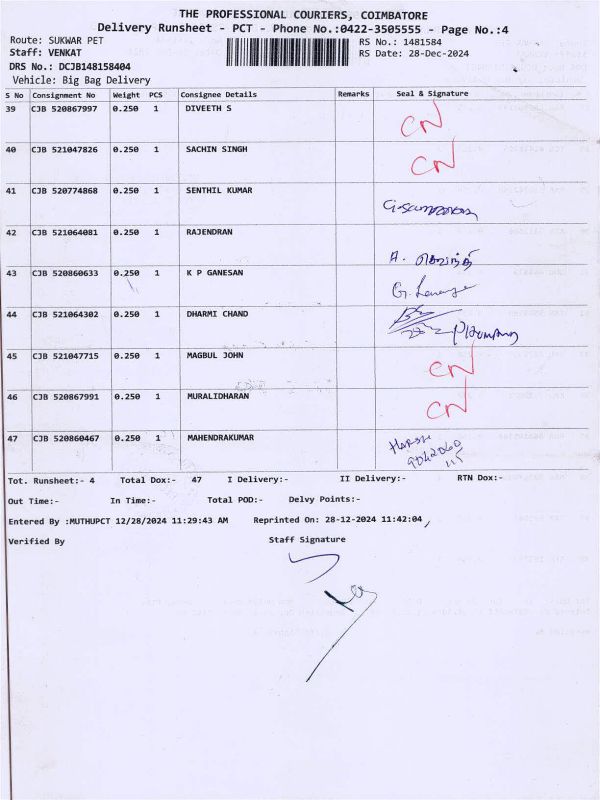 THE PROFESSIONAL COURIERS, COIMBATORE
Delivery Runsheet - PCT - Phone No.:0422-3505555 - Page No.:4
Route: SUKWAR PET RS No.: 1481584
Staff: VENKAT RS Date: 28-Dec-2024
DRS No.: DCJB148158404
Vehicle: Big Bag Delivery
S No Consignment No Weight PCS Consignee Details Remarks Seal & Signature
39 CJB 520867997 0.250 1 DIVEETH S CN
40 CJB 521047826 0.250 1 SACHIN SINGH CN
41 CJB 520774868 0.250 1 SENTHIL KUMAR
42 CJB 521064081 0.250 1 RAJENDRAN A.
43 CJB 520860633 0.250 1 K P GANESAN G.
44 CJB 521064302 0.250 1 DHARMI CHAND
45 CJB 521047715 0.250 1 MAGBUL JOHN CN
46 CJB 520867991 0.250 1 MURALIDHARAN CN
47 CJB 520860467 0.250 1 MAHENDRAKUMAR HARSH
9042060
115
Tot. Runsheet:- 4 Total Dox:- 47 I Delivery:- II Delivery:- RTN Dox:-
Out Time:- In Time:- Total POD:- Delvy Points:-
Entered By :MUTHUPCT 12/28/2024 11:29:43 AM Reprinted On: 28-12-2024 11:42:04
Verified By Staff Signature